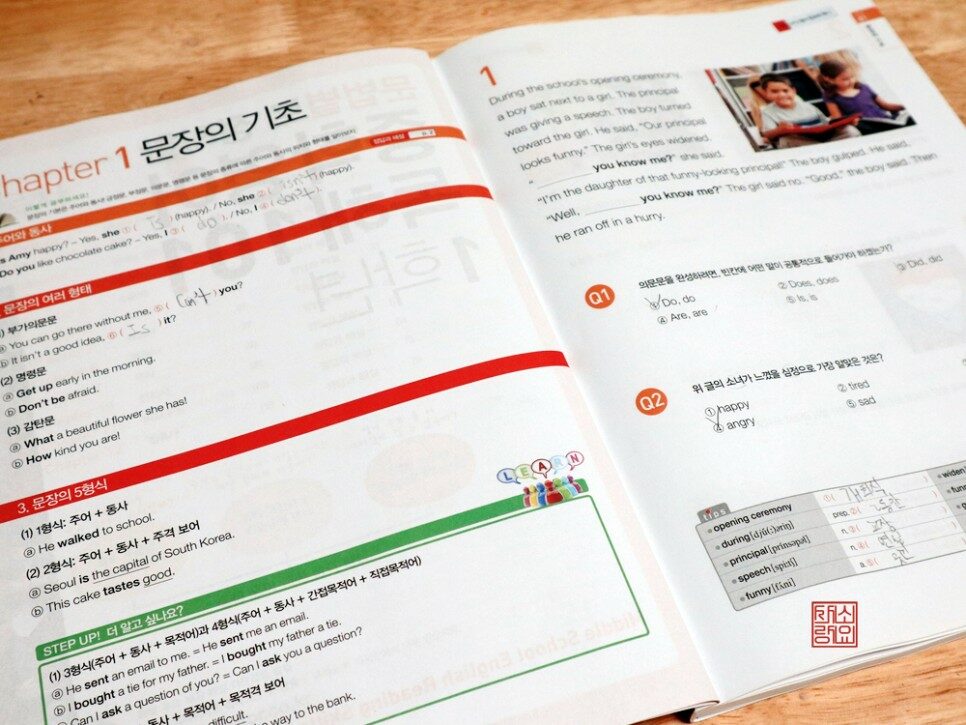 hapter 1 문장의 기초
정답과 해설 p.2
이렇게 공부하세요!
주어와 동사
s Amy happy? – Yes, she ①( is ) (happy). / No, she ②( isn't ) (happy).
Do you like chocolate cake? – Yes, I ③( do ). / No, I ④( don't ).
문장의 여러 형태
(1) 부가의문문
ⓐ You can go there without me, ⑤( can't ) you?
ⓑ It isn't a good idea, ⑥( Is ) it?
(2) 명령문
ⓐ Get up early in the morning.
ⓑ Don't be afraid.
(3) 감탄문
ⓐ What a beautiful flower she has!
ⓑ How kind you are!
3. 문장의 5형식
(1) 1형식: 주어 + 동사
ⓐ He walked to school.
(2) 2형식: 주어 + 동사 + 주격 보어
ⓐ Seoul is the capital of South Korea.
ⓑ This cake tastes good.
LEARN
STEP UP! 더 알고 싶나요?
(1) 3형식(주어 + 동사 + 목적어)과 4형식(주어 + 동사 + 간접목적어 + 직접목적어)
ⓐ He sent an email to me. = He sent me an email.
ⓑ I bought a tie for my father. = I bought my father a tie.
ⓒ Can I ask a question of you? = Can I ask you a question?
동사 + 목적어 + 목적격 보어
difficult.
he way to the bank.
1
During the school's opening ceremony,
a boy sat next to a girl. The principal
was giving a speech. The boy turned
toward the girl. He said, "Our principal
looks funny." The girl's eyes widened.
"________ you know me?" she said.
"I'm the daughter of that funny-looking principal!" The boy gulped. He said,
"Well, ________ you know me?" The girl said no. "Good," the boy said. Then
he ran off in a hurry.
Q1 의문문을 완성하려면, 빈칸에 어떤 말이 공통적으로 들어가야 하겠는가?
① Do, do ② Does, does ③ Did, did
④ Are, are ⑤ Is, is
Q2 위 글의 소녀가 느꼈을 심정으로 가장 알맞은 것은?
① happy ② tired
④ angry ⑤ sad
tips
opening ceremony ①( 개회식 )
during[djú(:)əriŋ] prep. ②(
principal[prínsəpəl] n. ③(
speech[spiːtʃ] n. ④( 연설
funny[fʌ́ni] a. ⑤(
widen
fun